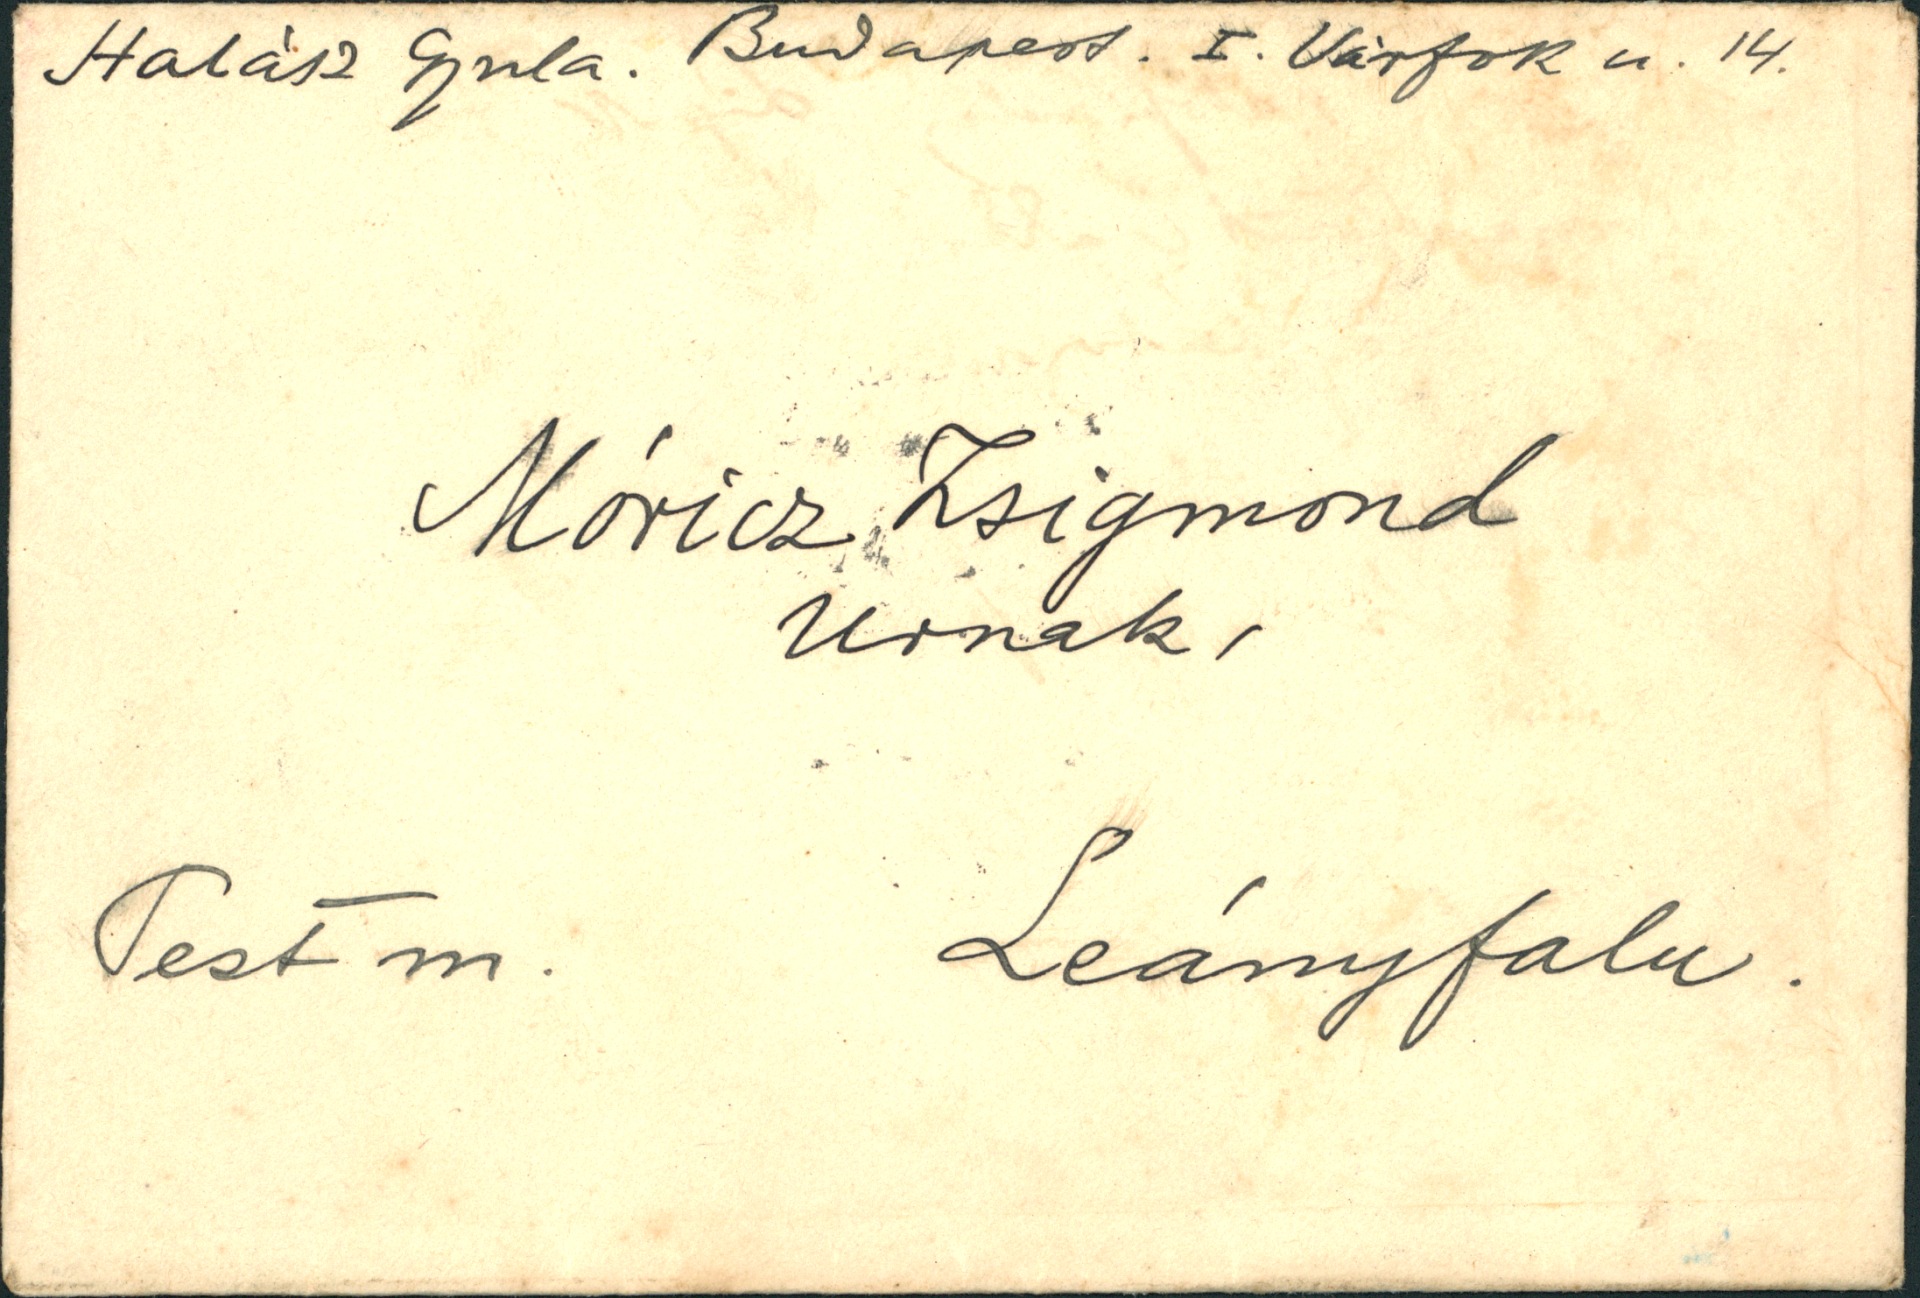 Halász Gyula. Budapest. I. Várfok u. 14.
Móricz Zsigmond
Urnak,
Pest m.
Leányfalu.